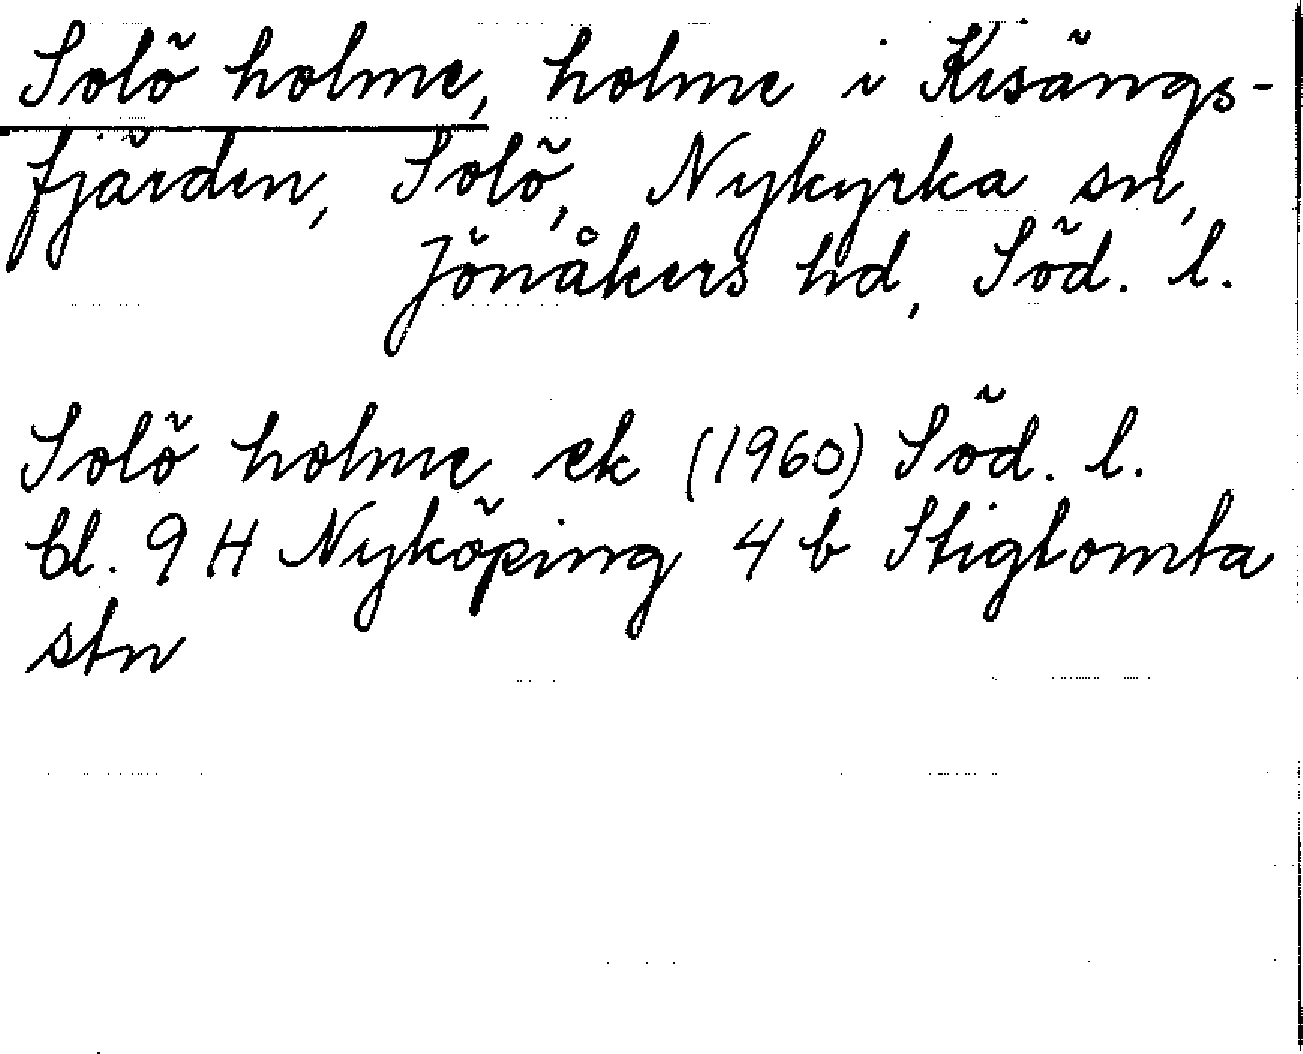 Solö holme, holme i Kisängs-
fjärden, Solö, Nykyrka sn,
Jönåkers hd, Söd. l.
Solö holme ek (1960) Söd. l.
bl. 9 H Nyköping 4 b Stigtomta
stn